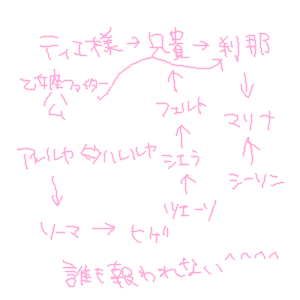 ティエ様→兄貴→刹那
乙女座ファイター
公
フェルト
マリナ
アレルヤ⇔ハレルヤ
シェラ
シーリン
ツエーリ
ソーマ→ヒゲ
誰も報われない^^^^